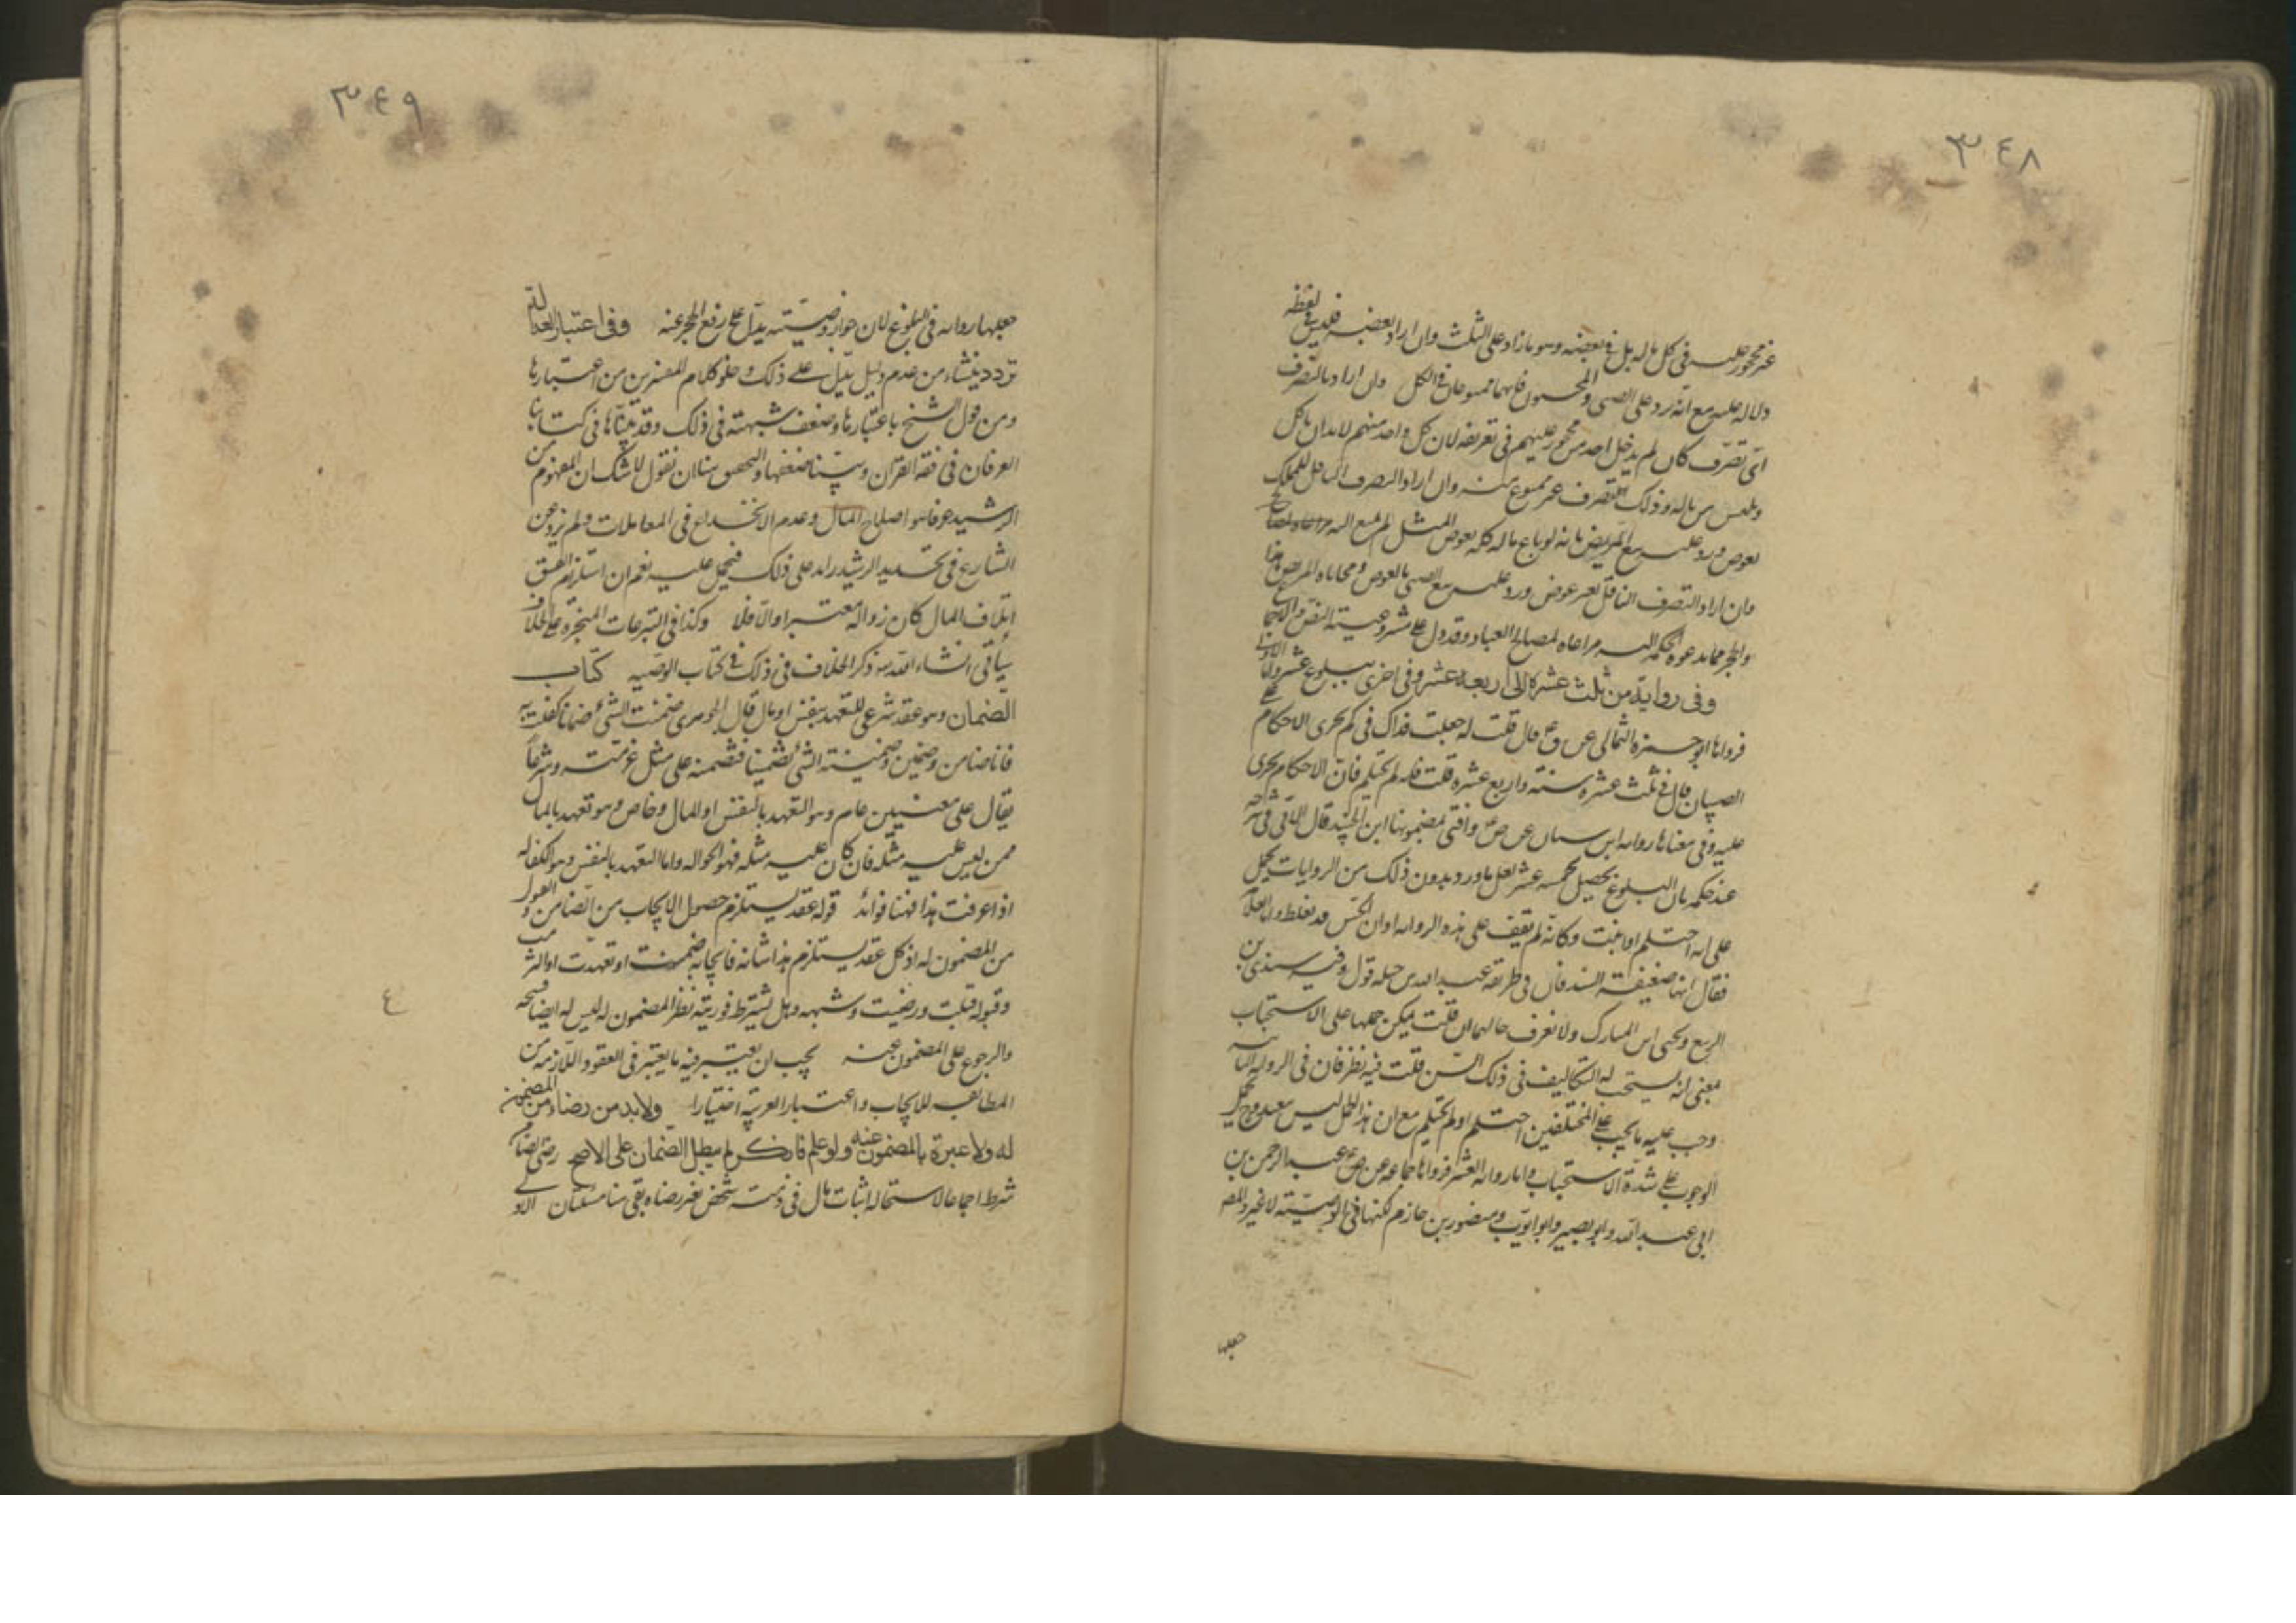 ٣٤٨
غير محجور عليه فى كل ماله بل فى بعضه وهو ما زاد على الثلث وان اراد بعضه فليس فى لفظه
دلالة عليه مع انه يرد على الصبى والمجنون فانهما ممنوعان فى الكل وان اراد بالتصرف
اى تصرف كان لم يدخل احد من محجور عليهم فى تعريفه لان كل واحد منهم لابد ان ياكل
ويلبس من ماله وذلك التصرف غير ممنوع منه وان اراد التصرف الناقل للملك
بعوض ورد عليه بيع المريض فانه لو باع ماله كله بعوض المثل لم يمنع
وان اراد التصرف الناقل بغير عوض ورد عليه بيع الصبى بالعوض ومحاباة المريض هذا
والحجر مما يدعوه الحكمة اليه مراعاة لمصالح العباد وقد دل على مشروعيته النص والاجماع
وفى رواية من ثلث عشرة الى اربعة عشر وفى اخرى ببلوغ عشر اما الاولى
فرواها ابو حمزة الثمالى عن قال قلت له جعلت فداك فى كم يجرى الاحكام على
الصبيان قال فى ثلث عشرة سنة واربع عشرة قلت فانه لم يحتلم فان الاحكام يجرى
عليه وفى معناها رواية ابن سنان عن ص وافتى بمضمونها ابن الجنيد قال الآبى فى شرحه
عند حكمه بان البلوغ يحصل بخمسة عشر لعل ما ورد بدون ذلك من الروايات يحمل
على انه احتلم او انبت وكانه لم يقف على هذه الرواية او ان الحس قد يغلط واما العلامة
فقال انها ضعيفة السند فان فى طريقه عبد الله بن جبلة قول وفيه سندى بن
الربيع ويحيى بن المبارك ولا نعرف حالهما ان قلت يمكن حملها على الاستحباب
بمعنى انه يستحب له التكاليف فى ذلك السن قلت فيه نظر فان فى الرواية الثانية
وجب عليه ما يجب على المحتلمين احتلم او لم يحتلم مع ان هذا الحمل ليس
الوجوب على شدة الاستحباب واما رواية العشر فرواها جماعة عن ص عبد الرحمن بن
ابى عبد الله وابو بصير وابو ايوب ومنصور بن حازم لكنها فى الوصية لا غير والمص
جعلها
٣٤٩
جعلها رواية فى البلوغ لان جواز وصيته يدل على رفع الحجر عنه وفى اعتبار العدالة
تردد ينشاء من عدم دليل يدل على ذلك وخلو كلام المفسرين من اعتبارها
ومن قول الشيخ باعتبارها وضعف شبهته فى ذلك وقد بيناها فى كتابنا
العرفان فى فقه القرآن وبينا ضعفها والتحقيق هنا ان نقول لا شك ان المفهوم من
الرشيد عرفا هو اصلاح المال وعدم الانخداع فى المعاملات ولم يزد عن
الشارع فى تحديد الرشيد زايد على ذلك فيحمل عليه نعم ان استلزم الفسق
اتلاف المال كان زواله معتبرا والا فلا وكذا فى التبرعات المنجزة على الخلاف
سيأتى انشاء الله ذكر الخلاف فى ذلك فى كتاب الوصية كتاب
الضمان وهو عقد شرعى للتعهد بنفس او مال قال الجوهرى ضمنت الشئ ضمانا كفلت به
فانا ضامن وضمين وضمنته الشئ تضمينا فتضمنه على مثل غرمته وشرعا
يقال على معنيين عام وهو التعهد بالنفس او المال وخاص وهو تعهد بالمال
ممن ليس عليه مثله فان كان عليه مثله فهو الحوالة واما التعهد بالنفس وهو الكفالة
اذا عرفت هذا فهنا فوائد قوله عقد يستلزم حصول الايجاب من الضامن والقبول
من المضمون له اذ كل عقد يستلزم هذا شانه فايجابه ضمنت او تعهدت او التزمت
وقبوله قبلت ورضيت وشبهه وهل يشترط فوريته نظر المضمون له ليس له ايضا فسخه
والرجوع على المضمون عنه يجب ان يعتبر فيه ما يعتبر فى العقود اللازمة من
المطابقه للايجاب واعتبار العربية اختيارا ولابد من رضاء من المضمون
له ولا عبرة بالمضمون عنه ولو علم فانكر لم يبطل الضمان على الاصح رضى الضامن
شرط اجماعا لاستحالة اثبات مال فى ذمة شخص بغير رضاه بقى هنا مسئلتان الاولى
٤